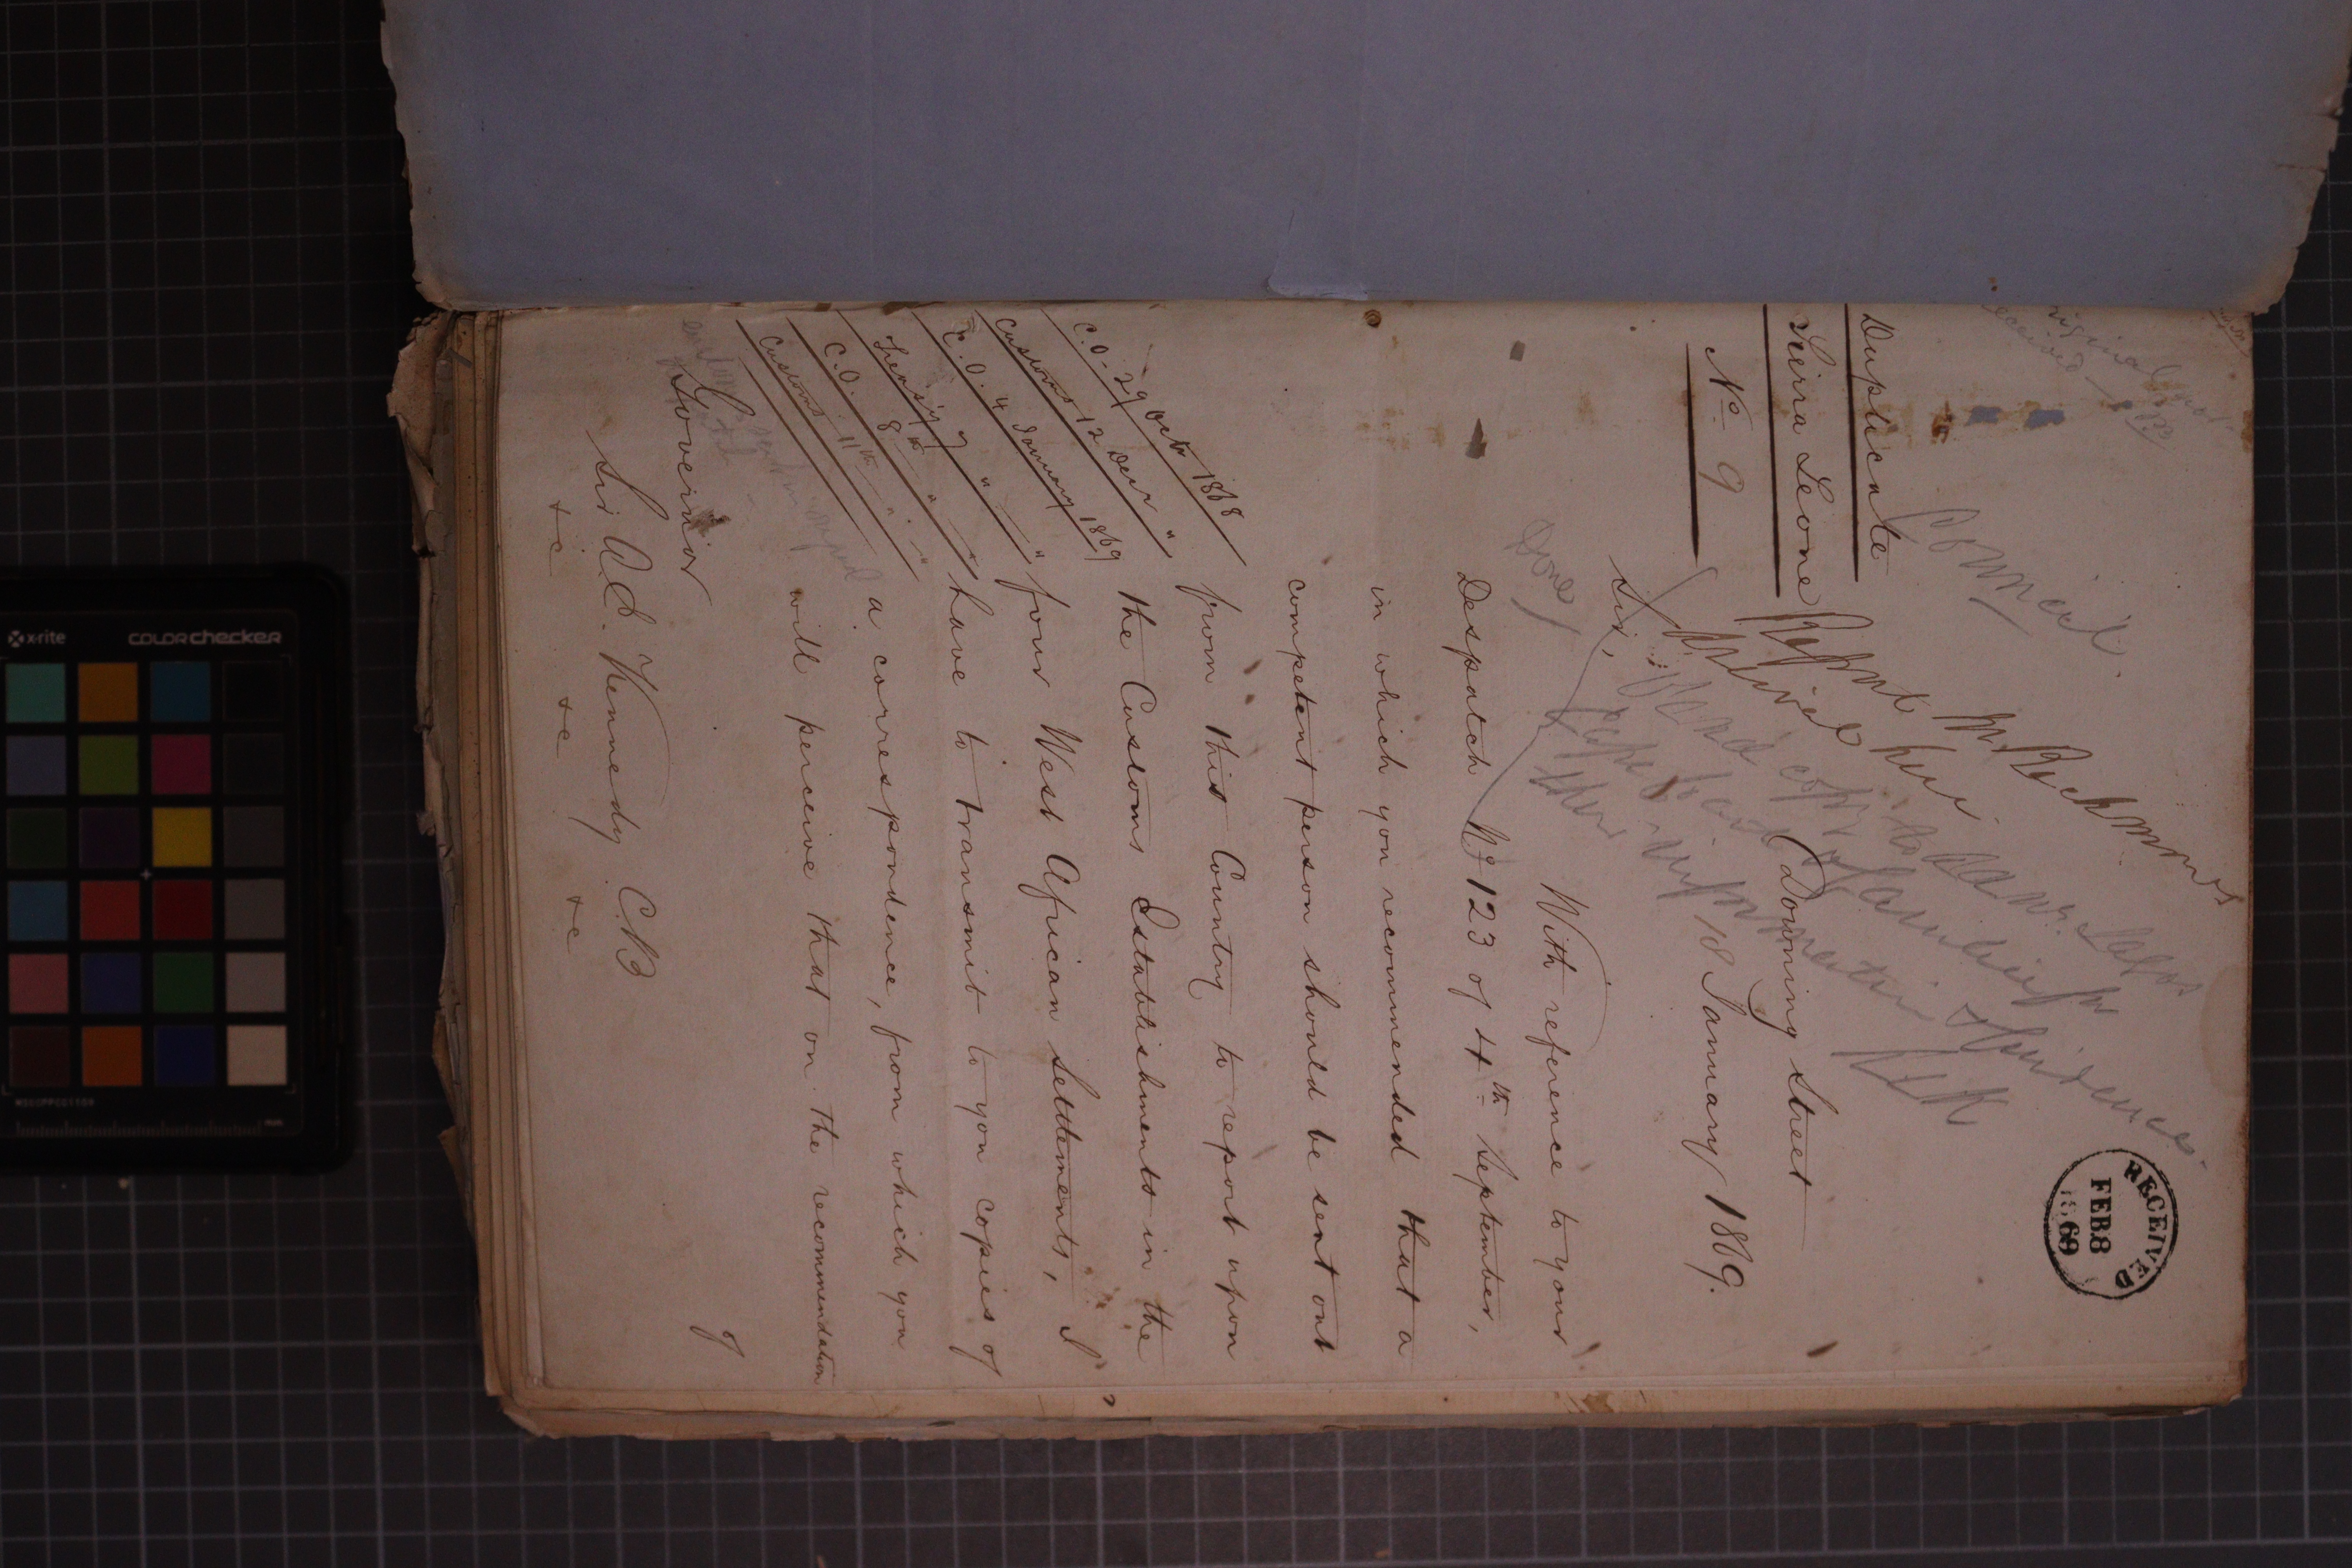 Duplicate
Sierra Leone
No 9
Council.
Report Mr Rickmmes
arrived here
Send copies to
RECEIVED
FEB 8
1869
Downing Street
18 January 1869.
Sir,
Done
With reference to your
Despatch No 123 of 4th September,
in which you recommended that a
competent person should be sent out
from this Country to report upon
the Customs Establishments in the
four West African Settlements, I
have to transmit to you copies of
a correspondence, from which you
will perceive that on the recommendation
of
C.O. 29 Octr 1868
Customs 12 Decr "
C.O. 4 January 1869
Treasy 7 " "
C.O. 8th " "
Customs 11th " "
Governor
Sir A.E. Kennedy C.B
&c &c &c
x-rite
colorchecker
MSCCPPCC1104